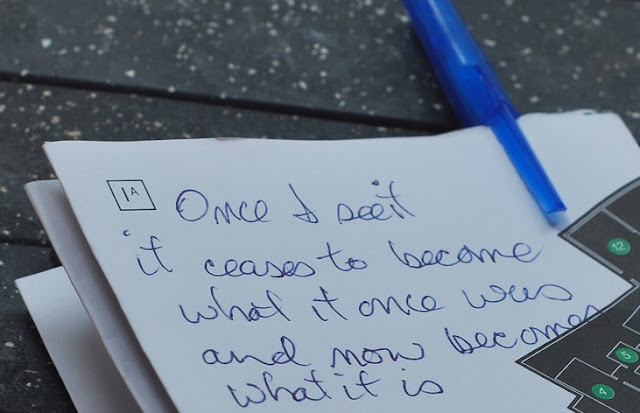 1A
Once I see it
it ceases to become
what it once was
and now becomes
what it is
12
5
4